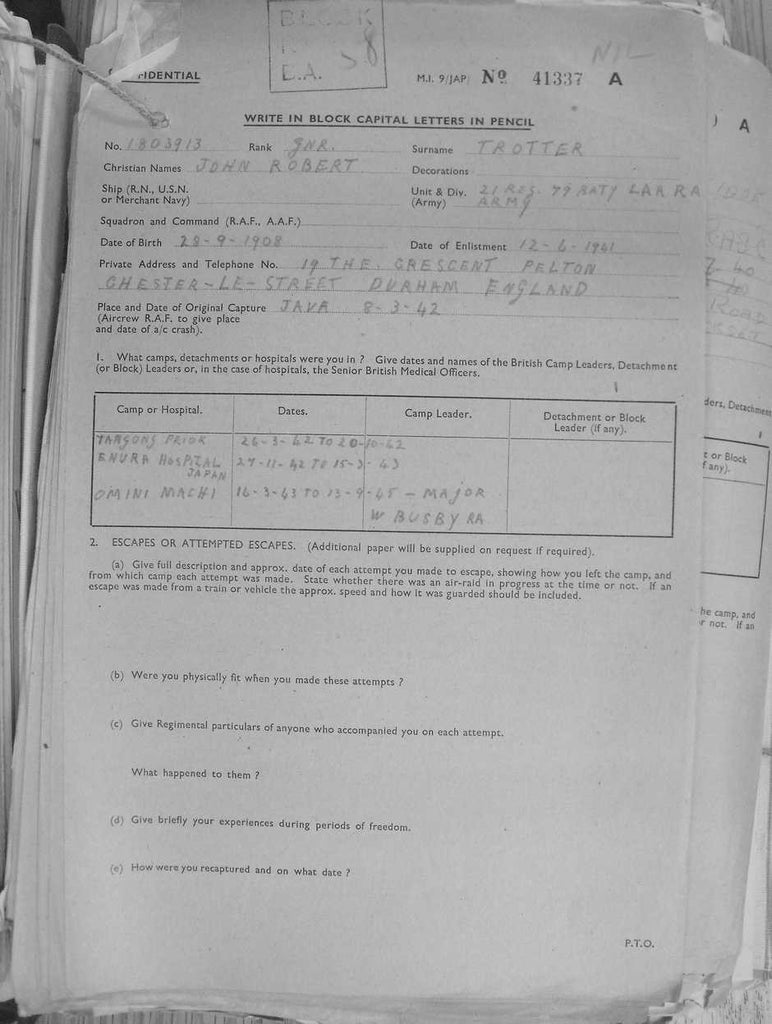 BLOCK
E.A.
8
NIL
IDENTIAL
M.I. 9/JAP/ No 41337 A
WRITE IN BLOCK CAPITAL LETTERS IN PENCIL
No. 1803913 Rank GNR. Surname TROTTER
Christian Names JOHN ROBERT Decorations
Ship (R.N., U.S.N. or Merchant Navy)
Unit & Div. (Army) 21 REG. 79 BATY LAR RA ARMY
Squadron and Command (R.A.F., A.A.F.)
Date of Birth 28-9-1908 Date of Enlistment 12-6-1941
Private Address and Telephone No. 19 THE. CRESCENT PELTON
CHESTER-LE-STREET DURHAM ENGLAND
Place and Date of Original Capture JAVA 8-3-42
(Aircrew R.A.F. to give place
and date of a/c crash).
1. What camps, detachments or hospitals were you in ? Give dates and names of the British Camp Leaders, Detachment
(or Block) Leaders or, in the case of hospitals, the Senior British Medical Officers.
Camp or Hospital. Dates. Camp Leader. Detachment or Block
Leader (if any).
TANGONG PRIOK 26-3-42 TO 20-10-42
ENURA HOSPITAL 27-11-42 TO 15-3-43
JAPAN
OMINI MACHI 16-3-43 TO 13-9-45 - MAJOR
W BUSBY RA
2. ESCAPES OR ATTEMPTED ESCAPES. (Additional paper will be supplied on request if required).
(a) Give full description and approx. date of each attempt you made to escape, showing how you left the camp, and
from which camp each attempt was made. State whether there was an air-raid in progress at the time or not. If an
escape was made from a train or vehicle the approx. speed and how it was guarded should be included.
(b) Were you physically fit when you made these attempts ?
(c) Give Regimental particulars of anyone who accompanied you on each attempt.
What happened to them ?
(d) Give briefly your experiences during periods of freedom.
(e) How were you recaptured and on what date ?
P.T.O.
A
ROAD
ders, Detachment
t or Block
f any).
he camp, and
r not. If an